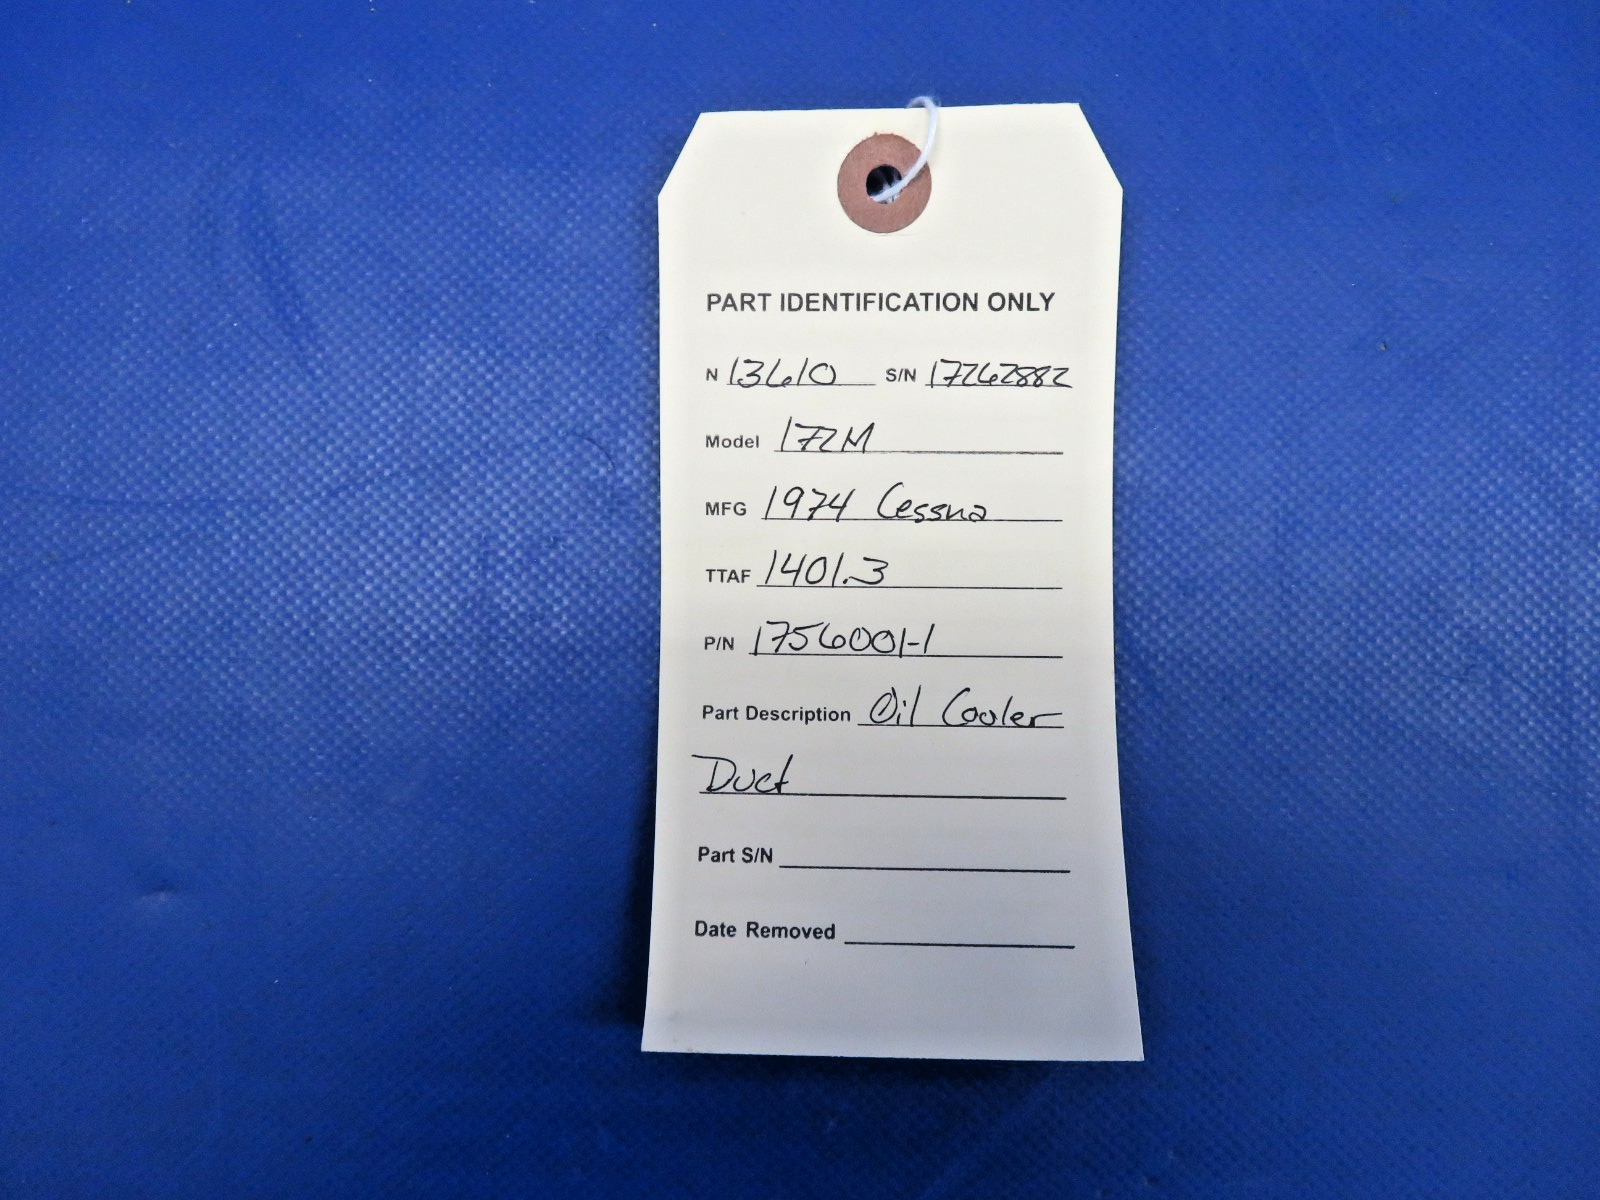 PART IDENTIFICATION ONLY
N 13610 S/N 17262882
Model 172M
MFG 1974 Cessna
TTAF 1401.3
P/N 1756001-1
Part Description Oil Cooler
Duct
Part S/N
Date Removed